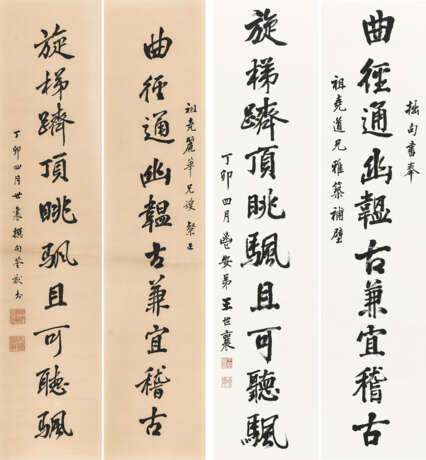 拙句書奉
曲徑通幽韞古兼宜稽古
祖堯道兄雅築補壁
旋梯躋頂眺颿且可聽颿
丁卯四月鬯安弟王世襄
祖堯麗華兄嫂粲正
曲徑通幽韞古兼宜稽古
旋梯躋頂眺颿且可聽颿
丁卯四月世襄撰句荃猷書